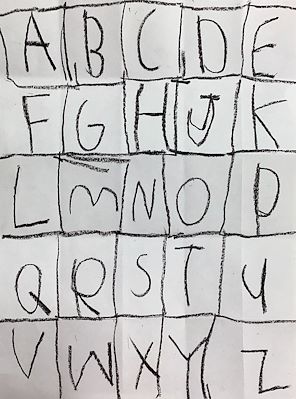 A B C D E
F G H J K
L M N O P
Q R S T U
V W X Y Z